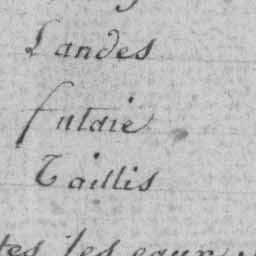 Landes
futaie
Taillis
tes les eaux